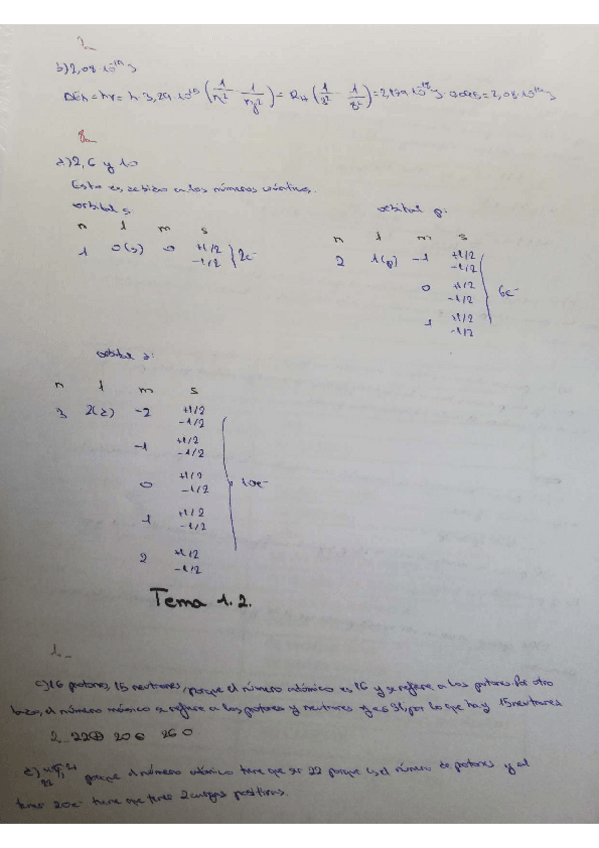 b) 2,08·10⁻¹⁸ J
ΔEh = hν = h·3,29·10¹⁵ (1/n₁² - 1/n₂²) = RH (1/2² - 1/8²) = 2,179·10⁻¹⁸ J
8_
a) 2, 6 y 10
Esto es debido a los números cuánticos.
orbital s: orbital p:
n l m s
1 0(s) 0 +1/2 -1/2 } 2e-
n l m s
2 1(p) -1 +1/2 -1/2
0 +1/2 -1/2 6e-
1 +1/2 -1/2
orbital d:
n l m s
3 -2 +1/2 -1/2
-1 +1/2 -1/2
0 +1/2 -1/2 10e-
1 +1/2 -1/2
2 +1/2 -1/2
Tema 1.2.
1._
c) 16 protones, 15 neutrones, porque el número atómico es 16 y se refiere a los protones. Por otro
lazo, el número másico se refiere a los protones y neutrones y es 31, por lo que hay 15 neutrones
2_ 22⊕ 20⊖ 26 0
porque el número atómico tiene que ser 22 porque es el número de protones y al
tener 20e- tiene que tener 2 cargas positivas.